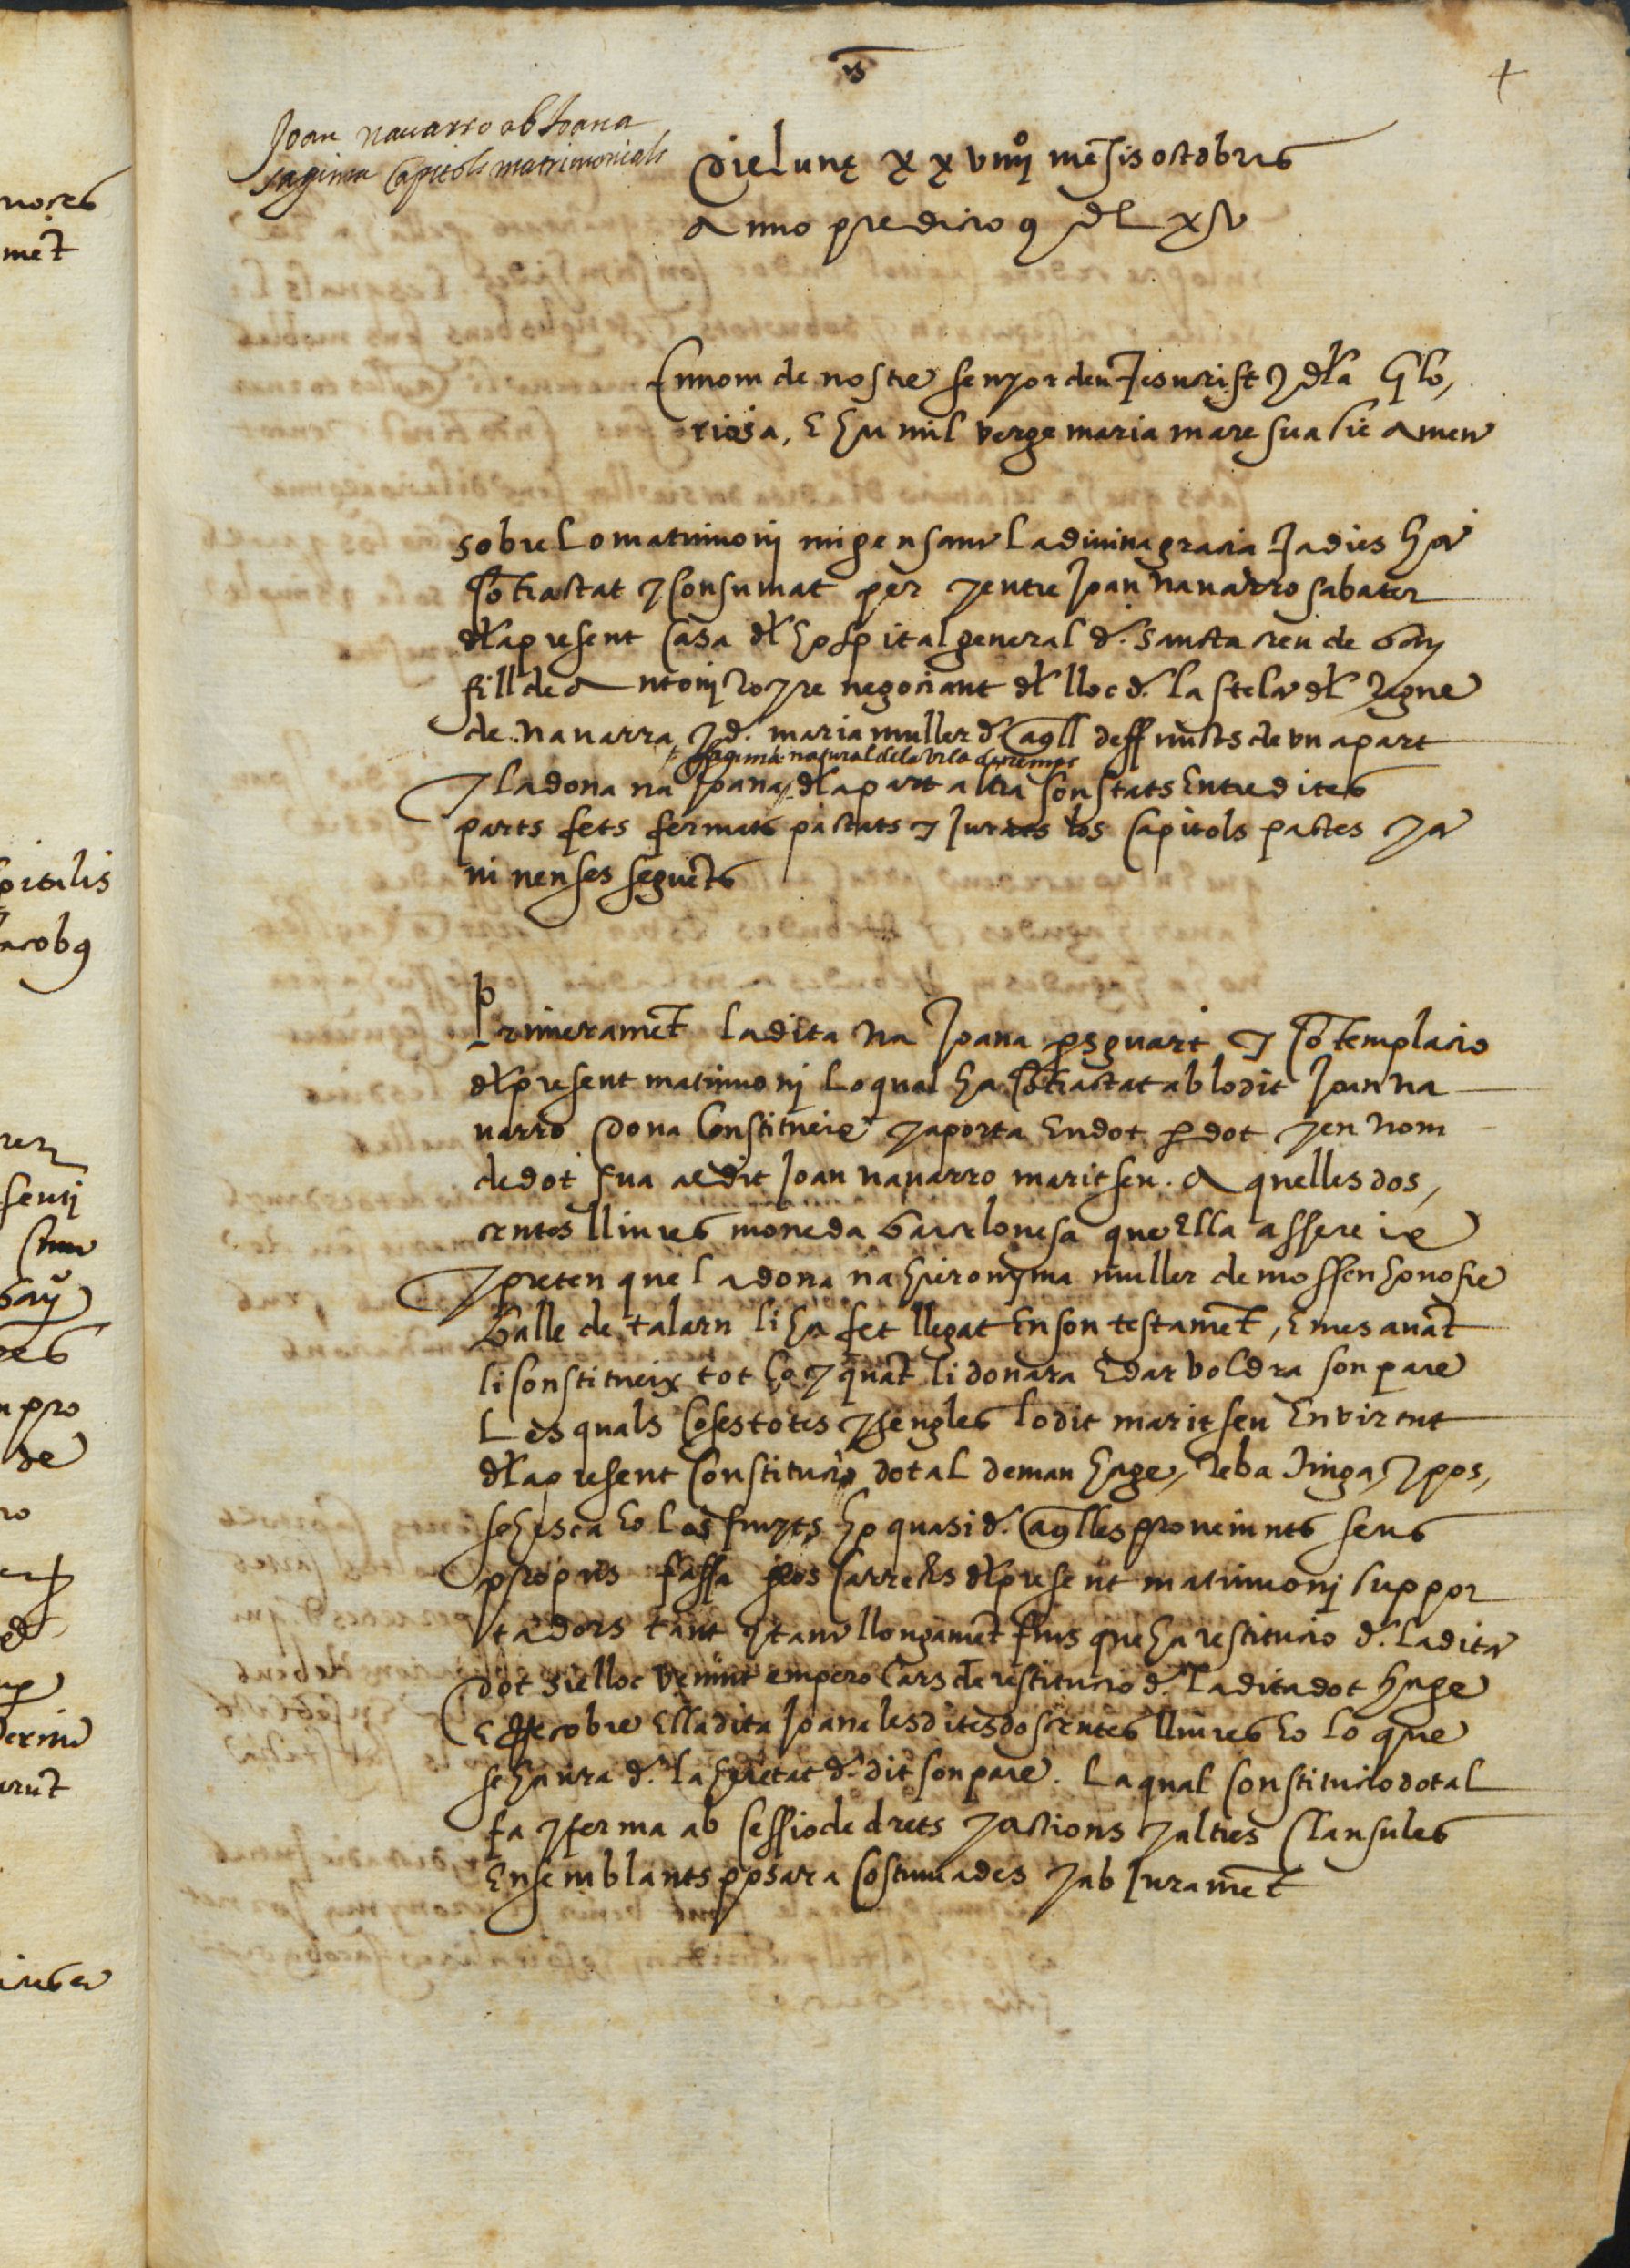 Joan nauarro ab Joana
sagima Capitols matrimonials
Die lunę xxviiij mēsis octobris
Anno predicto MDLxv
En nom de nostre senyor deu Jesucrist y dla Glo,
riosa, E humil verge maria mare sua sie Amen
Sobre lo matrimoni migensant la diuina gracia Ja dies ha
Cōtractat y Consumat per y entre Joan nauarro sabater
dla present Casa dl hospital general d. Sancta creu de bar
fill de Antoni negociant dl lloc d. la stela dl regne
de nauarra y d. maria muller d aqll deffuncts de vna part
sagima natural dela vila de
y la dona na Joana dla part altra son stats Entre dites
parts fets fermats pactats y Jurats los Capitols pactes y a
ninenses seguēts
Primeramēt la dita na Joana p sguart y Cōtemplacio
dl present matrimonj lo qual ha Cōtractat ab lo dit Joan na
uarro dona Constitueix y aporta En dot p dot y en nom
de dot sua al dit Joan nauarro marit seu. Aquelles dos,
centes lliures moneda barcelonesa que Ella assereix
y preten que la dona na hieronyma muller de mossen honofre
Batlle de talarn li ha fet llegat En son testamēt, E mes auāt
li Constitueix tot ço y quāt li donara E dar voldra son pare
Les quals Coses totes y sengles lo dit marit seu En virtut
dla present Constitucio dotal deman hage, reba tinga, y pos,
sehesca E o los fruyts ho quasi d. aqlles prouenints seus
propris fassa p los Carrechs dl present matrimonj suppor
tadors tant y tant llongamēt fins que ha restitucio d. la dita
dot sie lloc venint empero Cars de restitucio d. la dita dot hage
E recobre Ella dita Joana les dites doscentes lliures E o lo que
se haura d. la heretat d. dit son pare. La qual Constitucio dotal
fa y ferma ab Cessio de drets y actions y altres Clausules
En semblants posar acostumades y ab Juramēt